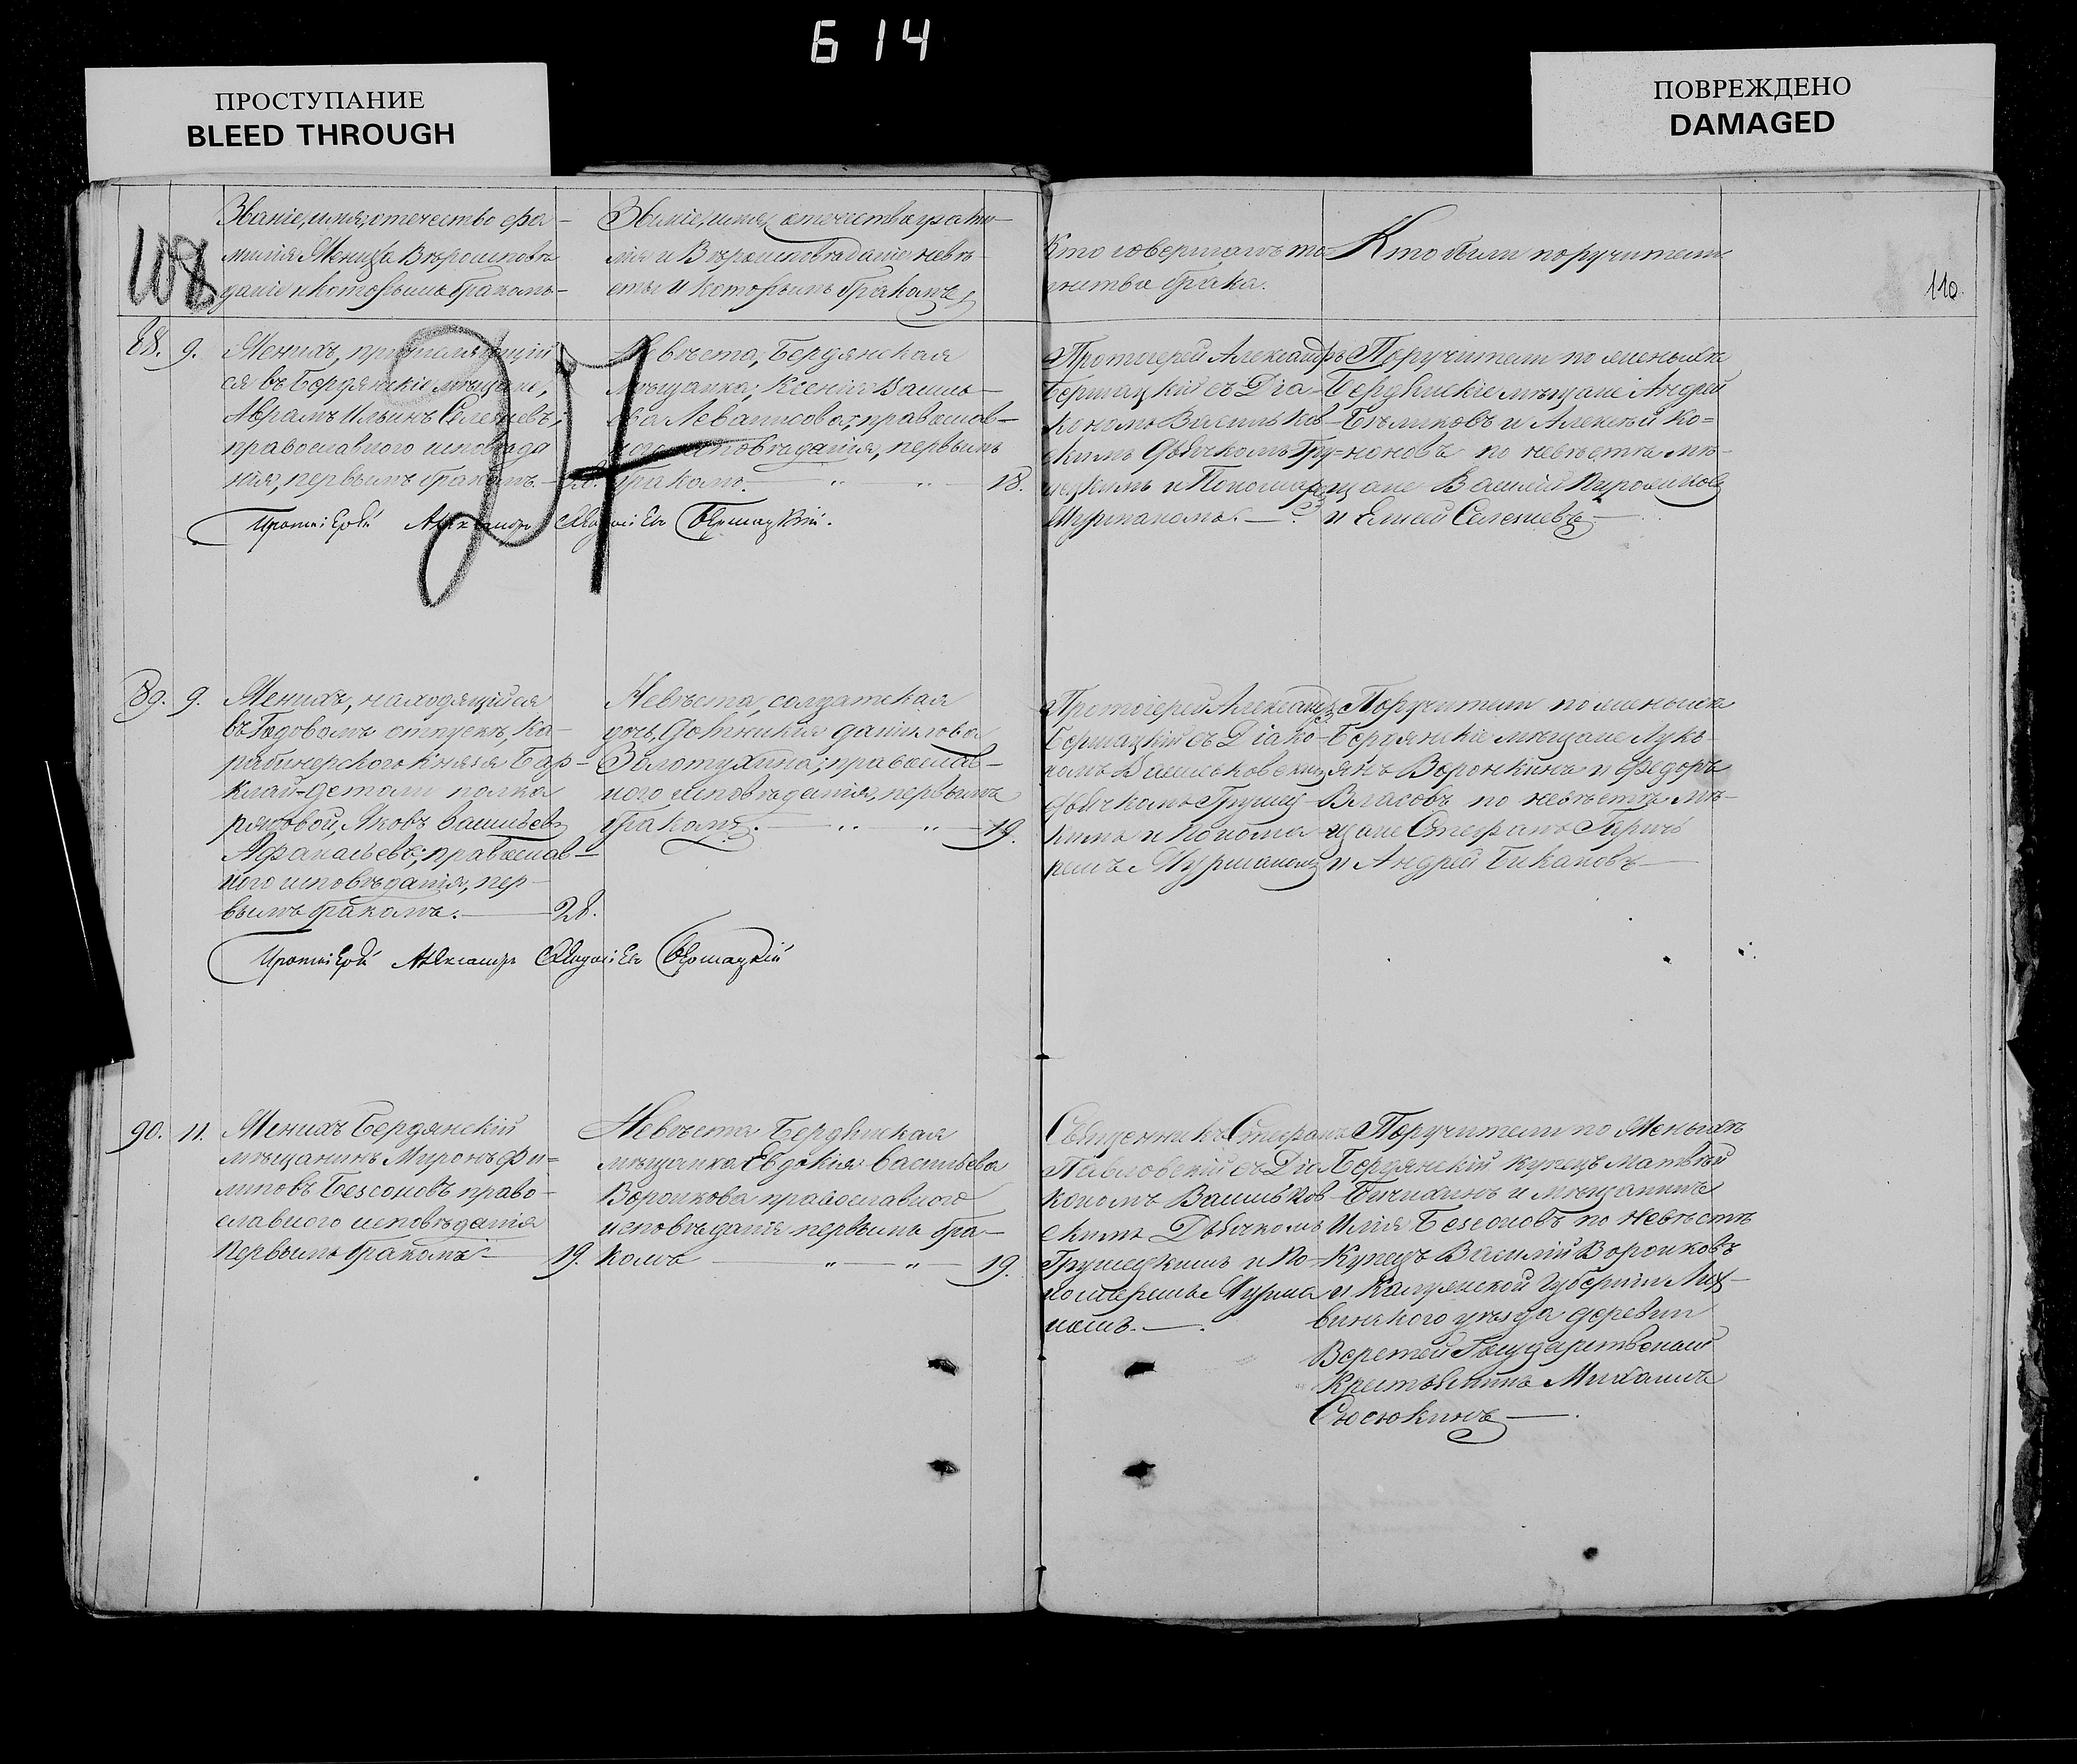 Б 14
ПРОСТУПАНИЕ
BLEED THROUGH
ПОВРЕЖДЕНО
DAMAGED
108
110.
Званіе, имя, отечество фа-
милія Жениха Вѣроисповѣ
даніе и которымъ бракомъ-
Званіе, имя, отечество фами-
лія и Вѣроисповѣданіе невѣ-
сты и которымъ бракомъ
Кто совершалъ та-
инство брака.
Кто были поручители
27
88. 9.
Женихъ, причисляющій
ся въ Бердянскіе мѣщане,
Аврамъ Ильинъ Селезневъ;
православнаго исповѣда
нія, первымъ бракомъ.
Невѣста, Бердянская
мѣщанка, Ксенія Василь-
ева православ-
ного исповѣданія, первымъ
бракомъ. — „ — „ — 18.
Протоіерей Александръ
Бершацкій съ Діа-
кономъ Васильков-
скимъ Дьячкомъ Гру-
щецкимъ и Пономаремъ
Шурмакомъ.
Поручители по женихѣ
Бердянскіе мѣщане Андрей
Бѣликовъ и Алексѣй Ко=
ноновъ по невѣстѣ мѣ-
щане Василій
и Елисей Селезневъ
Протоіерей Александръ Бершацкій.
89. 9.
Женихъ, находящійся
въ Годовомъ отпускѣ, Ка-
рабинерского Князя Бар-
клай-де-толи полка
рядовой, Яковъ Васильевъ
Афанасьевъ; православ-
ного исповѣданія, пер-
вымъ бракомъ. — 28.
Невѣста, солдатская
дочь, Домникія Данилова
Золотухина; православ-
ного исповѣданія, первымъ
бракомъ. — „ — „ — 19.
Протоіерей Александръ
Бершацкій съ Діако-
номъ Васильковскимъ
Дьячкомъ Грущец-
кимъ и понома-
ремъ Шурмакомъ
Поручители по женихѣ
Бердянскіе мѣщане Лукь-
янъ Воронкинъ и Федоръ
Власовъ по невѣстѣ мѣ-
щане Стефанъ
и Андрей Бикановъ
Протоіерей Александръ Бершацкій
90. 11.
Женихъ Бердянскій
мѣщанинъ Миронъ Фи=
липовъ Безсоновъ право-
славного исповѣданія
первымъ бракомъ — 19.
Невѣста Бердянская
мѣщанка Евдокія Васильева
Воронкова православного
исповѣданія первымъ бра-
комъ — „ — „ — 19.
Священникъ Стефанъ
Павловскій съ Діа
кономъ Васильков-
скимъ Дьячкомъ
Грущецкимъ и По-
номаремъ Шурма
комъ.
Поручители по Женихѣ
Бердянскій купецъ Матвѣй
Бичихинъ и мѣщанинъ
Илія Безсоновъ по Невѣстѣ
Купецъ Василій Воронковъ
и Калужской Губерніи Лих-
винского уѣзда деревни
Веретей Государственной
Крестьянинъ Михаилъ
Сюсюкинъ